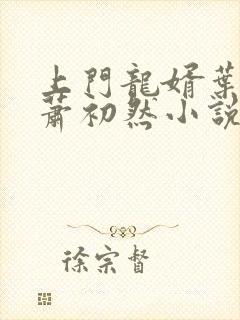 上門龍婿葉
蕭初然小說
徐宗督